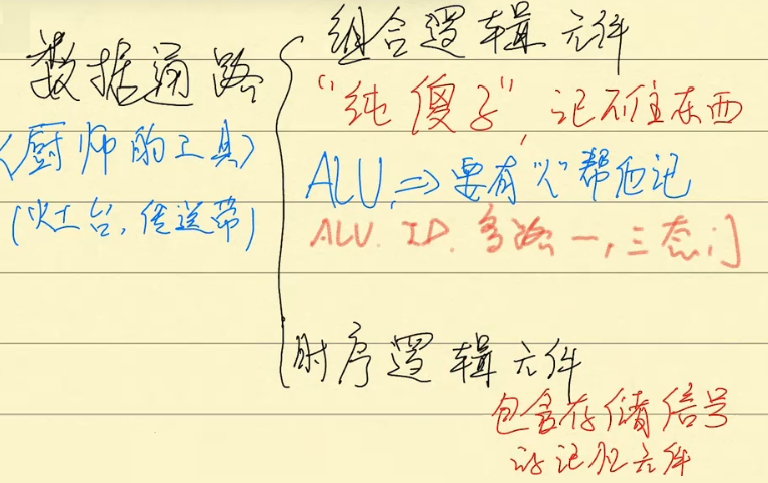 数据通路
(厨师的工具)
(灶台,传送带)
组合逻辑元件
“纯傻子”,记不住东西
ALU,⇒要有"人"帮他记
ALU. ID. 多路一,三态门
时序逻辑元件
包含存储信号
的记忆元件